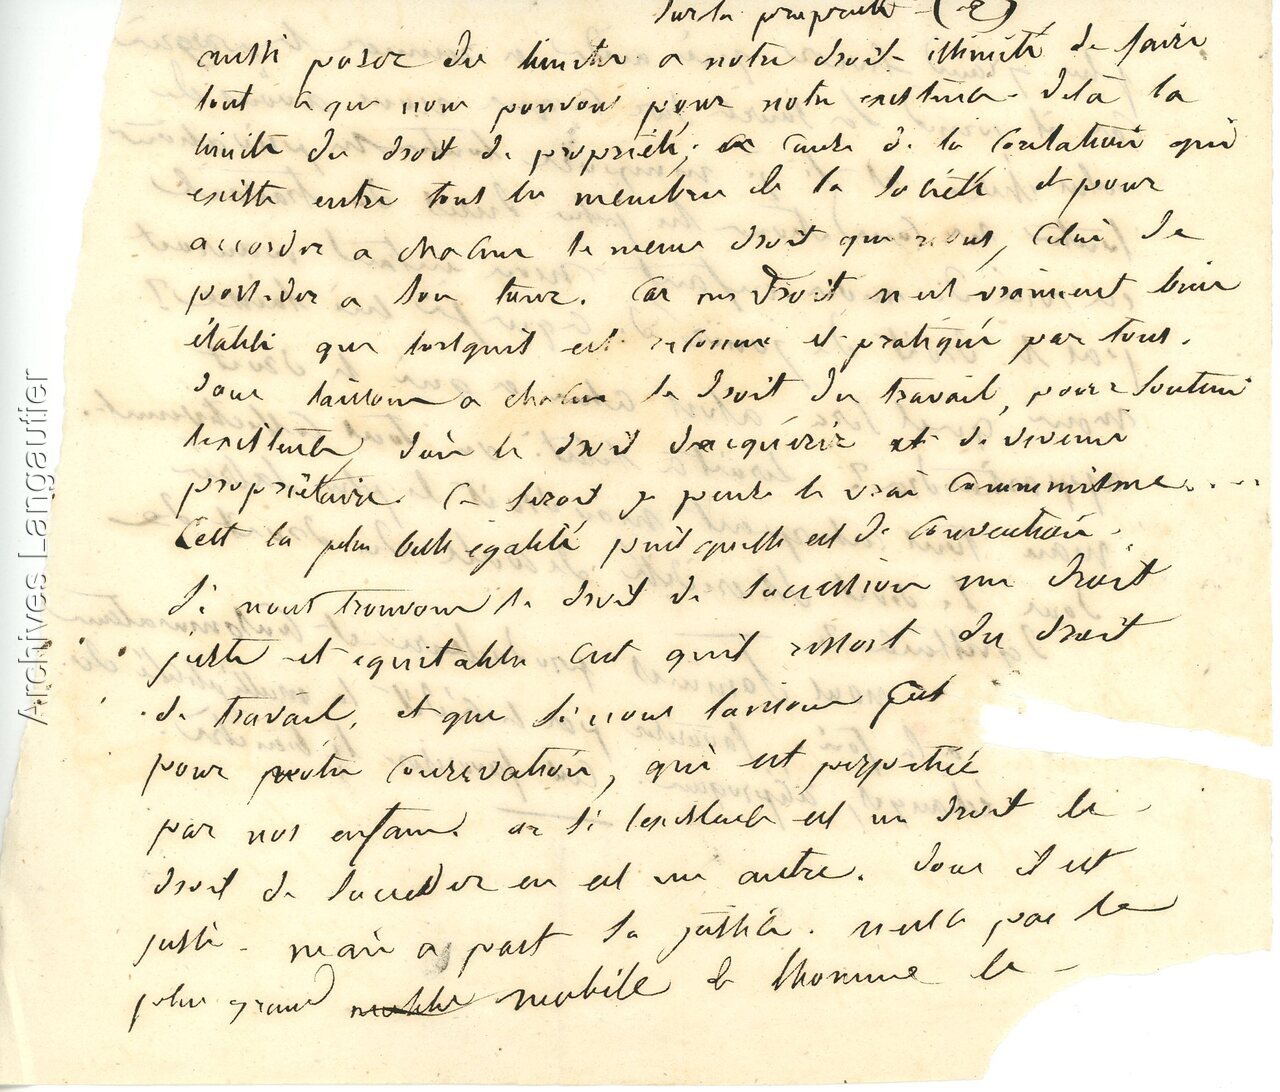 Sur la propriété - (2)
aussi poser des limites a notre droit illimité de faire
tout ce que nous pouvons pour notre existence - de la la
limite du droit de propriété; a cause de la corelation qui
existe entre tous les membres de la société et pour
accorder a chacun le meme droit que nous, celui de
posseder a son tour. Car un droit n'est vraiment bien
établi que lorsquil est reconnu et pratiqué par tous.
donc laissons a chacun le droit du travail, pour soutenir
lexistence, dou le droit dacquérir et de devenir
propriétaire. Ce serait je pense le vrai communisme....
Cest la plus belle égalité puis quelle est de convention.
Si nous trouvons le droit de succession un droit
juste et equitable cest quil ressort du droit
de travail, et que si nous laissons cest
pour notre conservation, qui est perpetuée
par nos enfans. or si lexistence est un droit le
droit de succeder en est un autre. donc il est
juste. mais a part la justice. nest ce pas le
plus grand mobile de lhomme le -
Archives Langautier